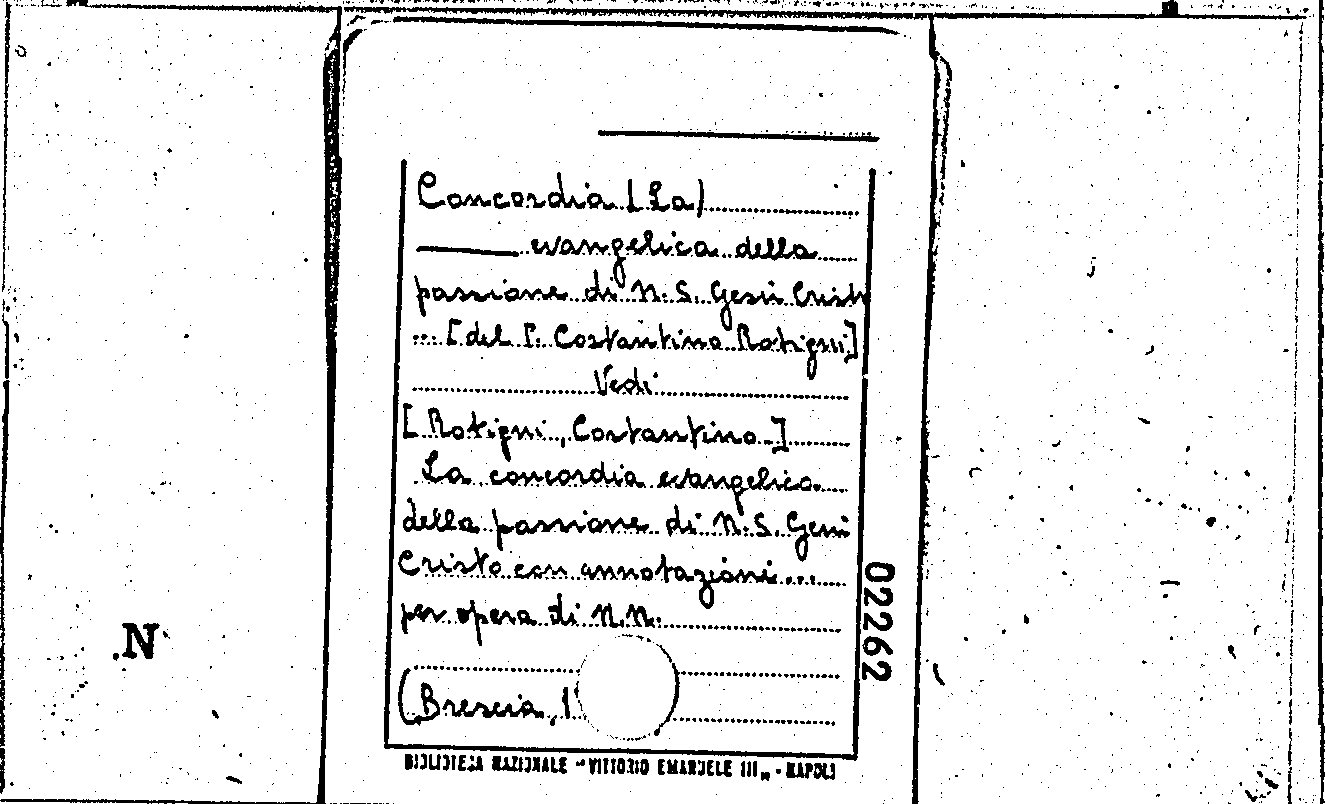 Concordia (La)
evangelica della
passione di N. S. Gesù Cristo
... [del P. Costantino Rotigni]
Vedi
[Rotigni, Costantino]
La concordia evangelica
della passione di N. S. Gesù
Cristo con annotazioni...
per opera di N. N.
(Brescia, 1
02262
.N
BIBLIOTECA NAZIONALE "VITTORIO EMANUELE III" - NAPOLI